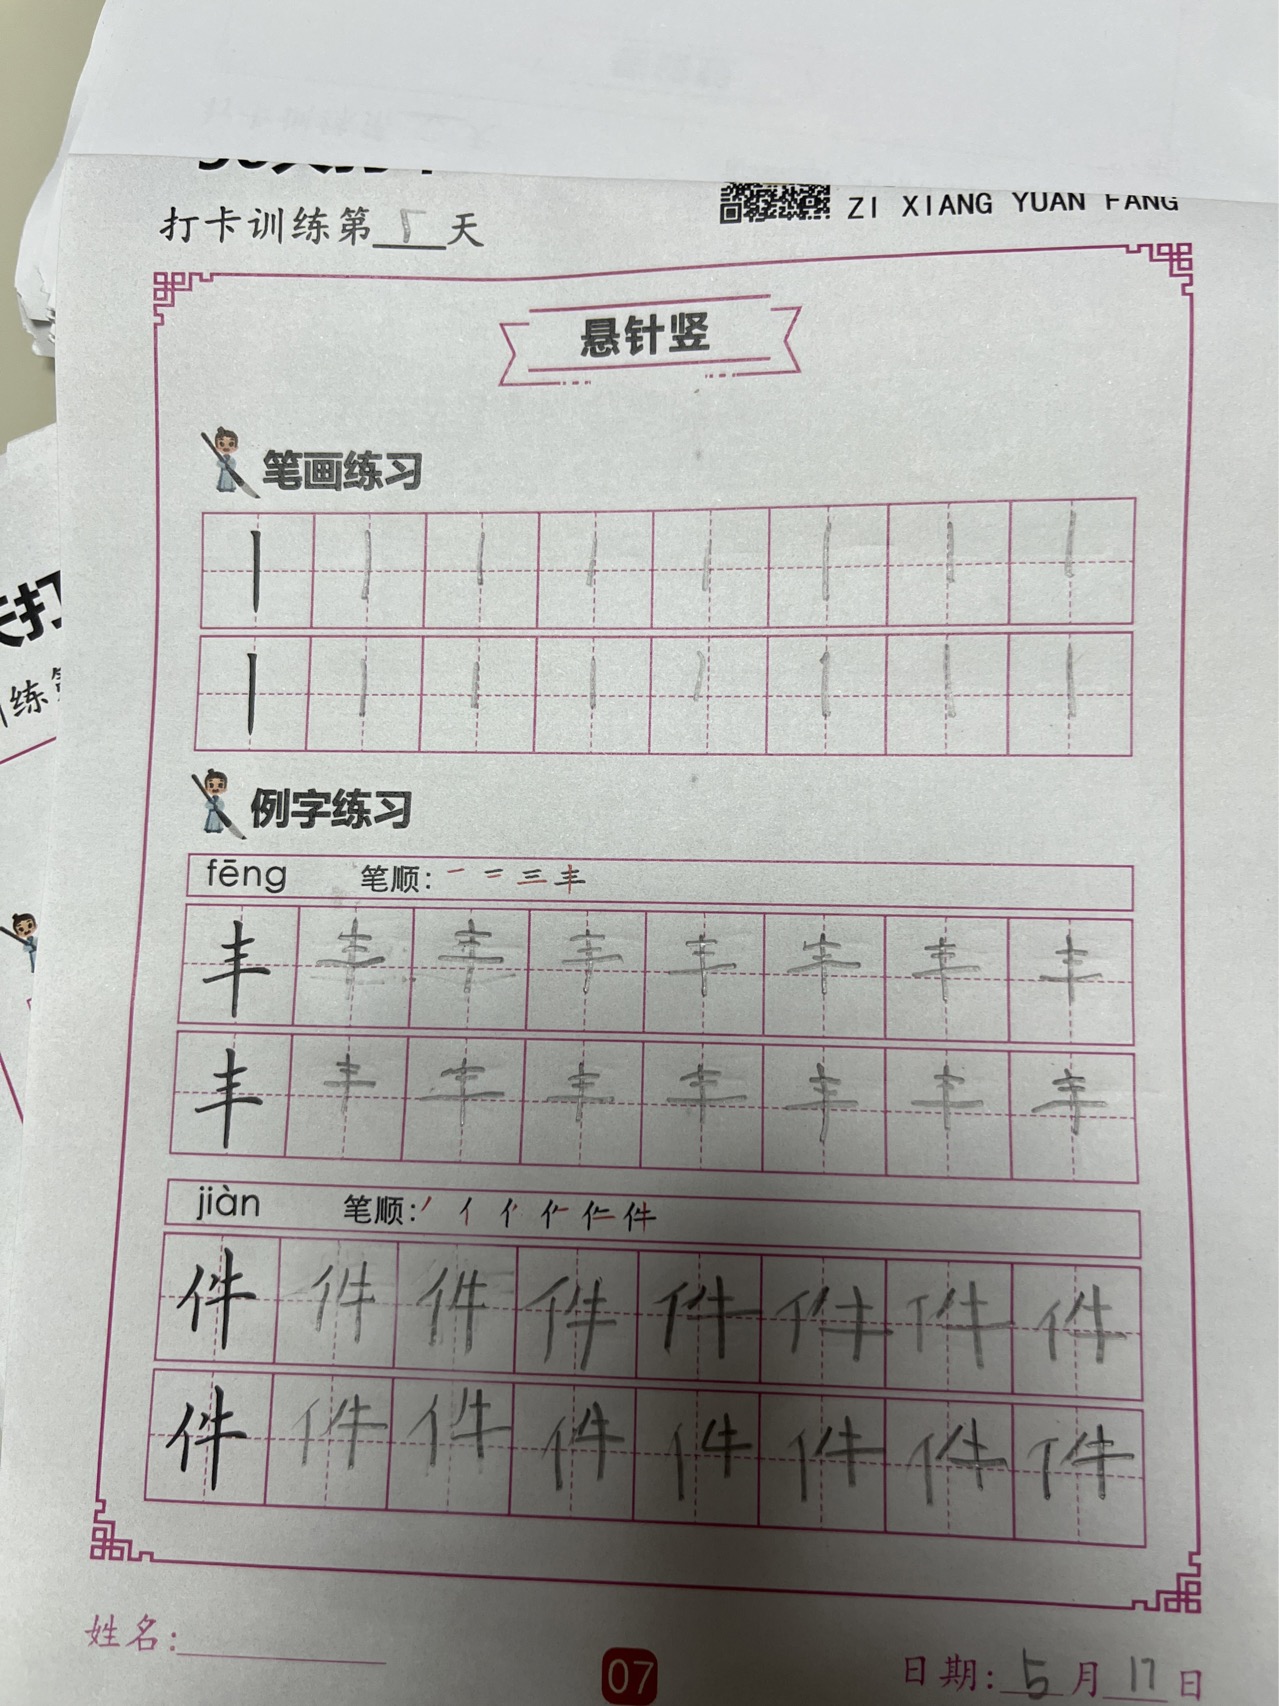 打卡训练第 天
ZI XIANG YUAN FANG
悬针竖
笔画练习
例字练习
fēng 笔顺: 一 二 三 丰
丰 丰 丰 丰 丰 丰 丰 丰
丰 丰 丰 丰 丰 丰 丰 丰
jiàn 笔顺: 丿 亻 件
件 件 件 件 件 件 件 件
件 件 件 件 件 件 件 件
姓名:
07
日期: 5 月 17 日
练